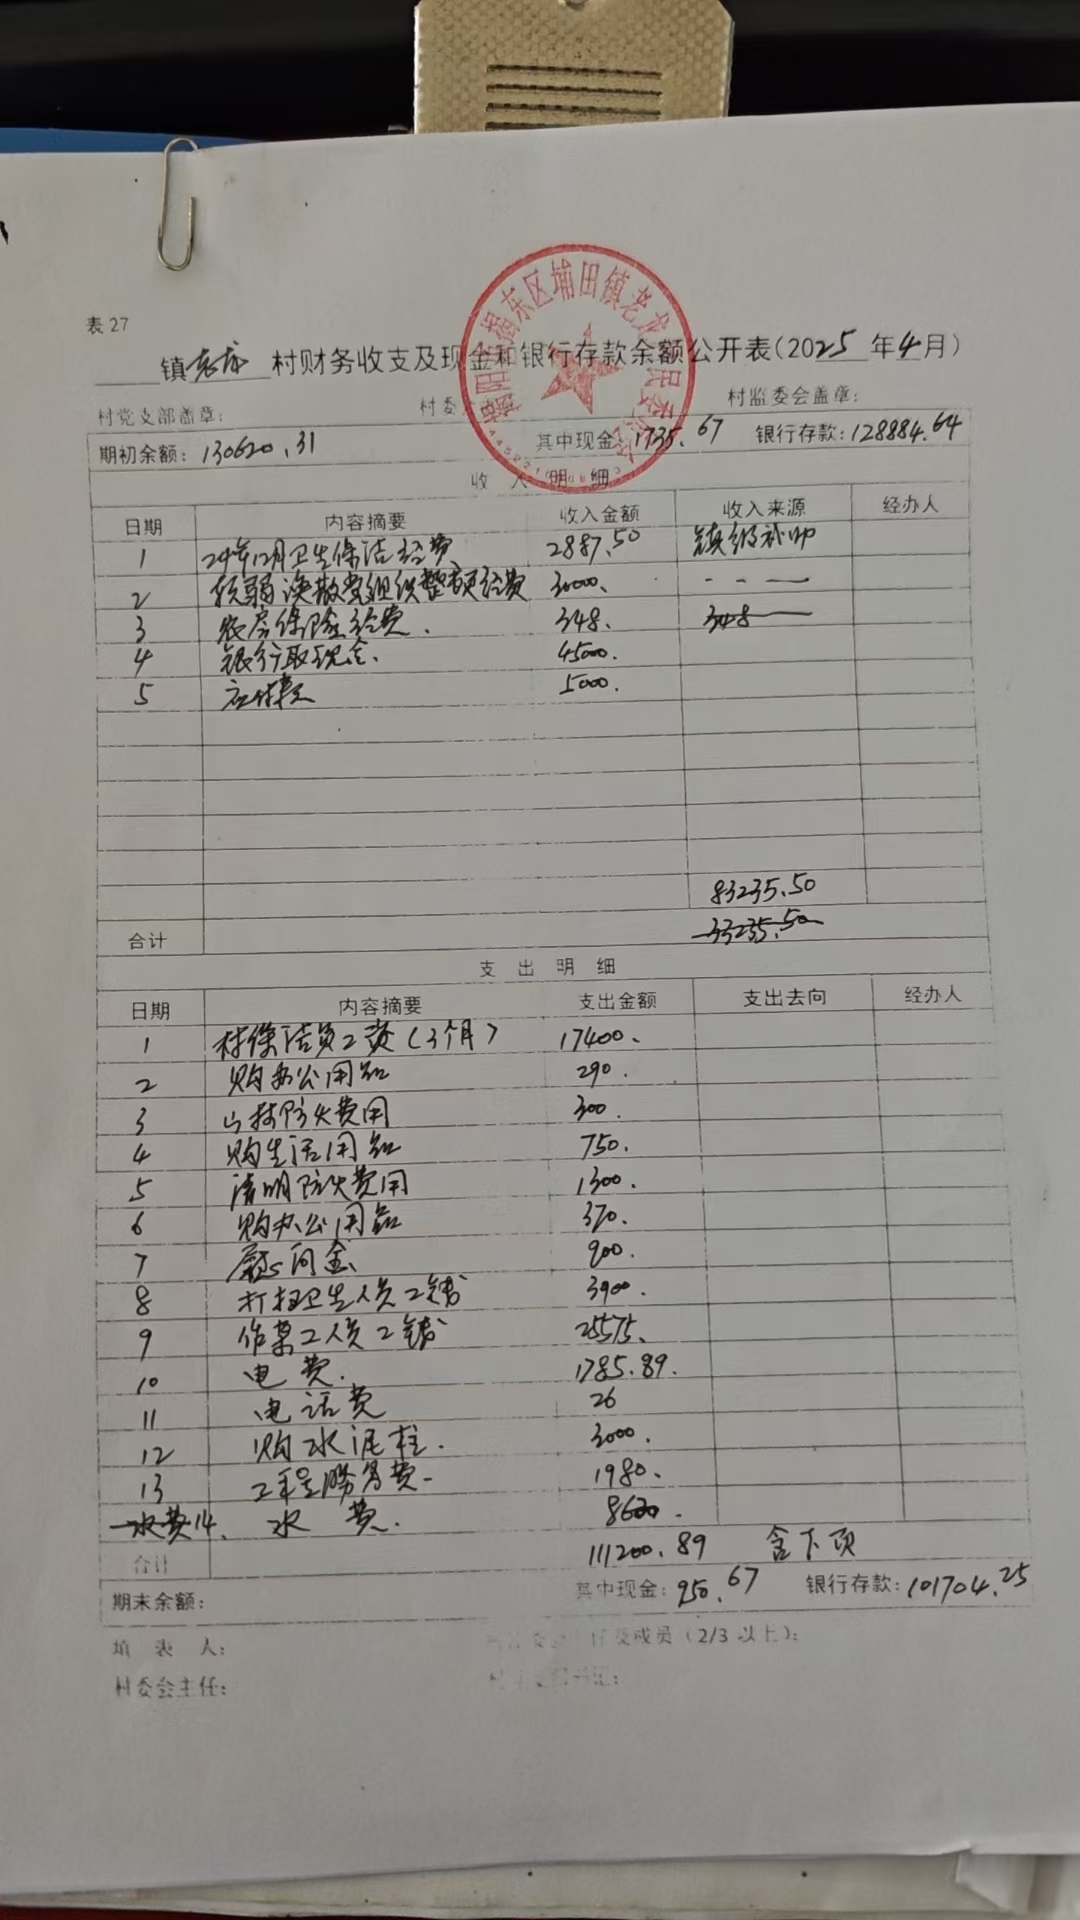 表27
镇老龙村财务收支及现金和银行存款余额公开表(2025年4月)
村党支部盖章: 村委 村监委会盖章:
期初余额: 130620.31 其中现金: 1735.67 银行存款: 128884.64
收入明细
日期 内容摘要 收入金额 收入来源 经办人
1 24年12月卫生保洁经费 2887.50 镇级补助
2 软弱涣散党组织整顿经费 30000.
3 农房保险经费. 348. 348
4 银行取现金. 45000.
5 应付款 5000.
83235.50
合计 33235.50
支出明细
日期 内容摘要 支出金额 支出去向 经办人
1 村保洁员工资(3个月) 17400.
2 购办公用品 290.
3 山林防火费用 300.
4 购生活用品 750.
5 清明防火费用 1300.
6 购办公用品 370.
7 慰问金 900.
8 打扫卫生人员工钱 3900.
9 作業工人员工钱 25575.
10 电费. 1785.89.
11 电话费 26
12 购水泥柱. 3000.
13 工程勝务费. 1980.
水费14. 水费. 8620.
合计 111200.89 含下页
期末余额: 其中现金: 950.67 银行存款: 101704.25
填表人: 成员(2/3以上):
村委会主任:
揭东区埔田镇老龙